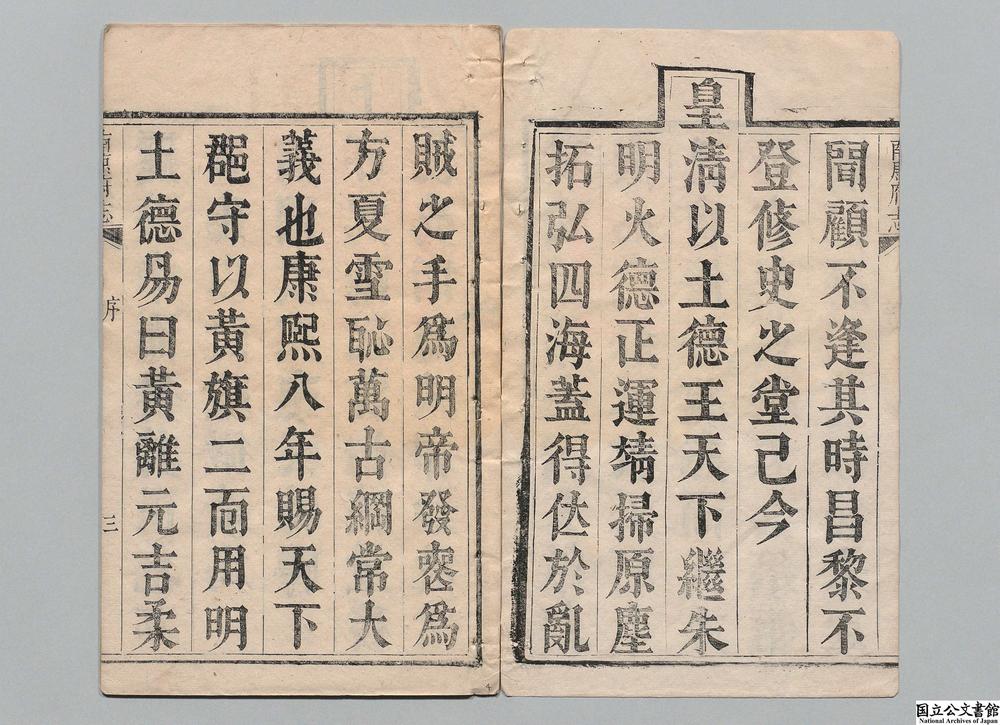 間顧不逢其時昌黎不
登修史之堂己今
皇清以土德王天下繼朱
明火德正運埥掃原塵
拓弘四海蓋得伏於亂
賊之手爲明帝發喪爲
方夏雪恥萬古綱常大
義也康熙八年賜天下
郡守以黃旗二面用明
土德易曰黃離元吉柔
南康府志
序
三
国立公文書館
National Archives of Japan